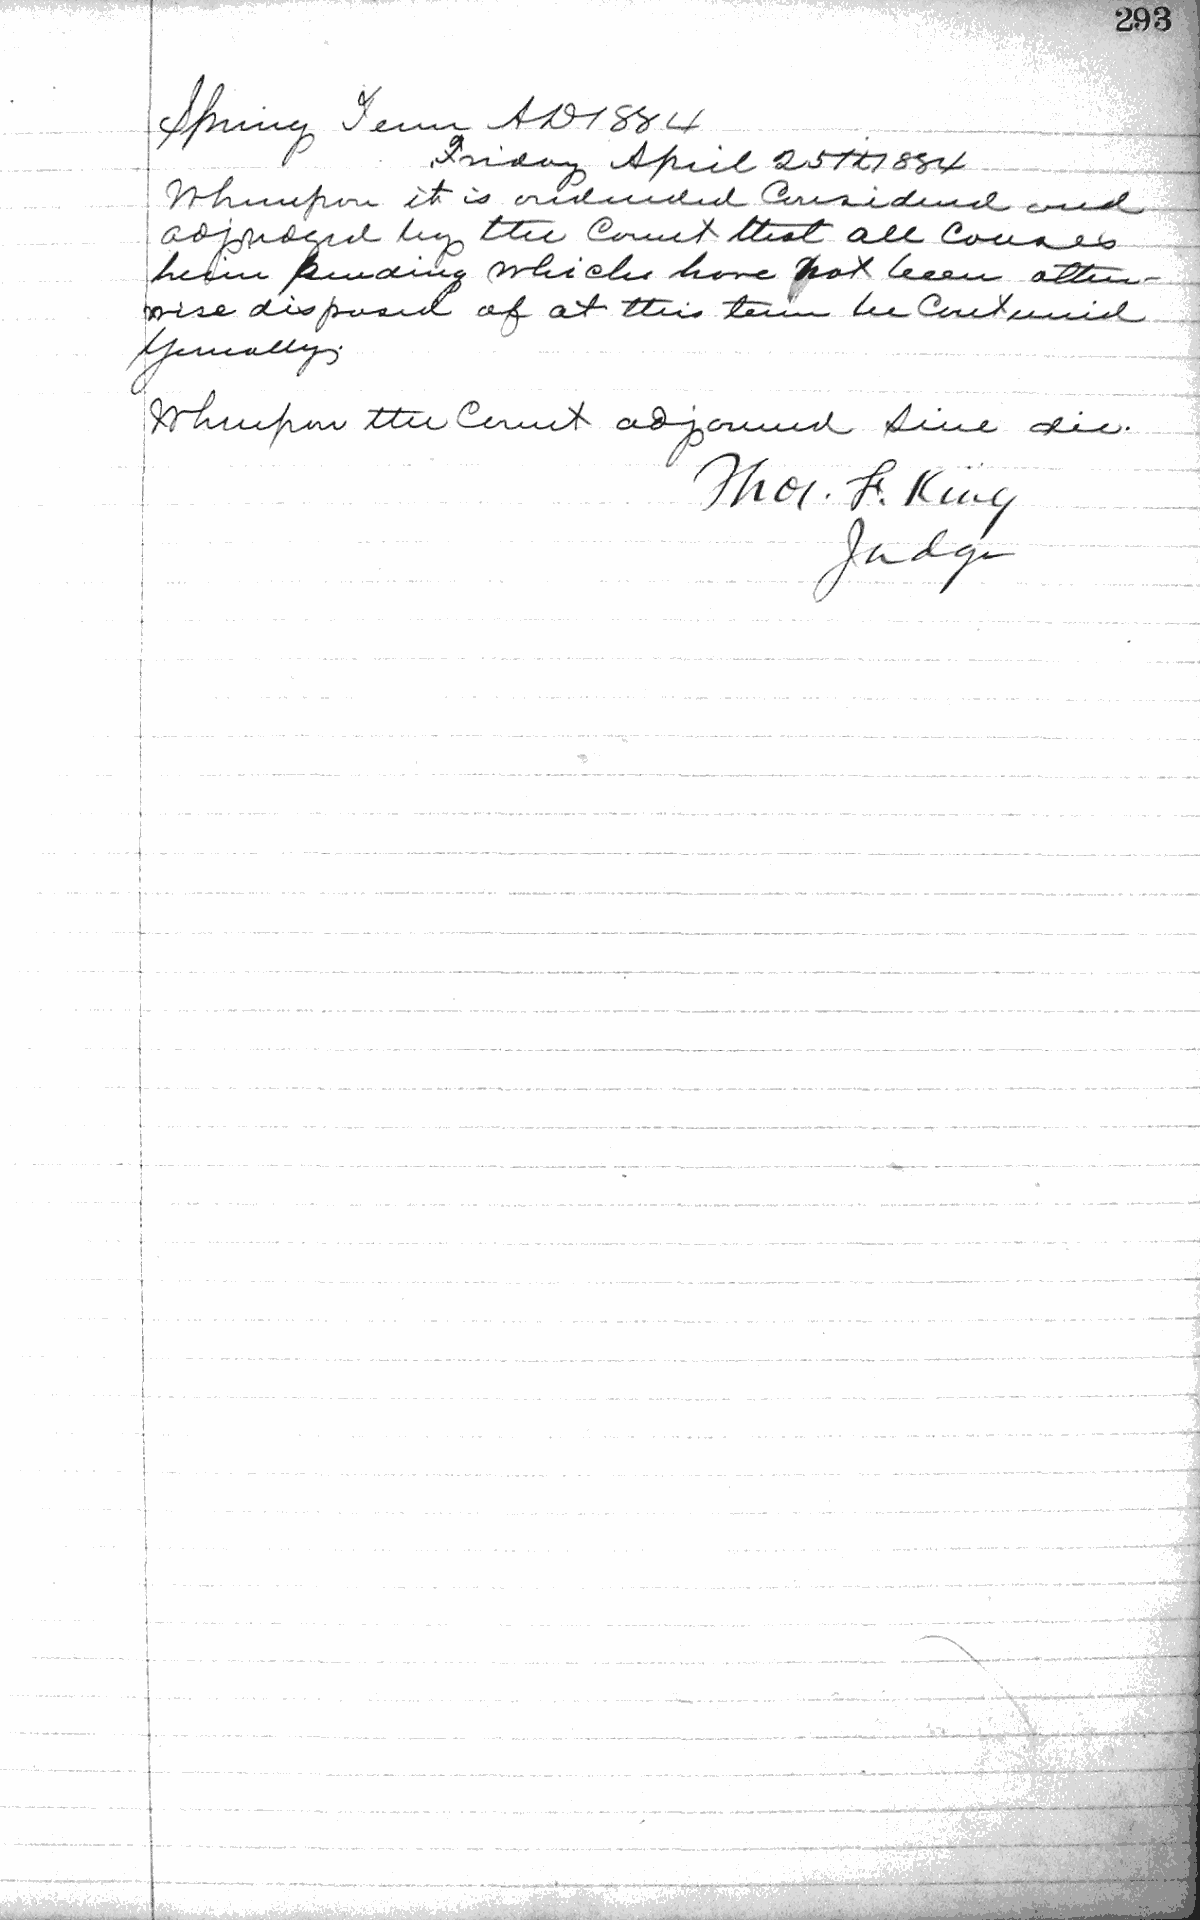 293
Spring Term AD 1884
Friday April 25th 1884
Whereupon it is ordered Considered and
adjudged by the Court that all Causes
herein pending which have not been other-
wise disposed of at this term be Continued
Generally.
Whereupon the Court adjourned Sine die.
Thos. F. King
Judge